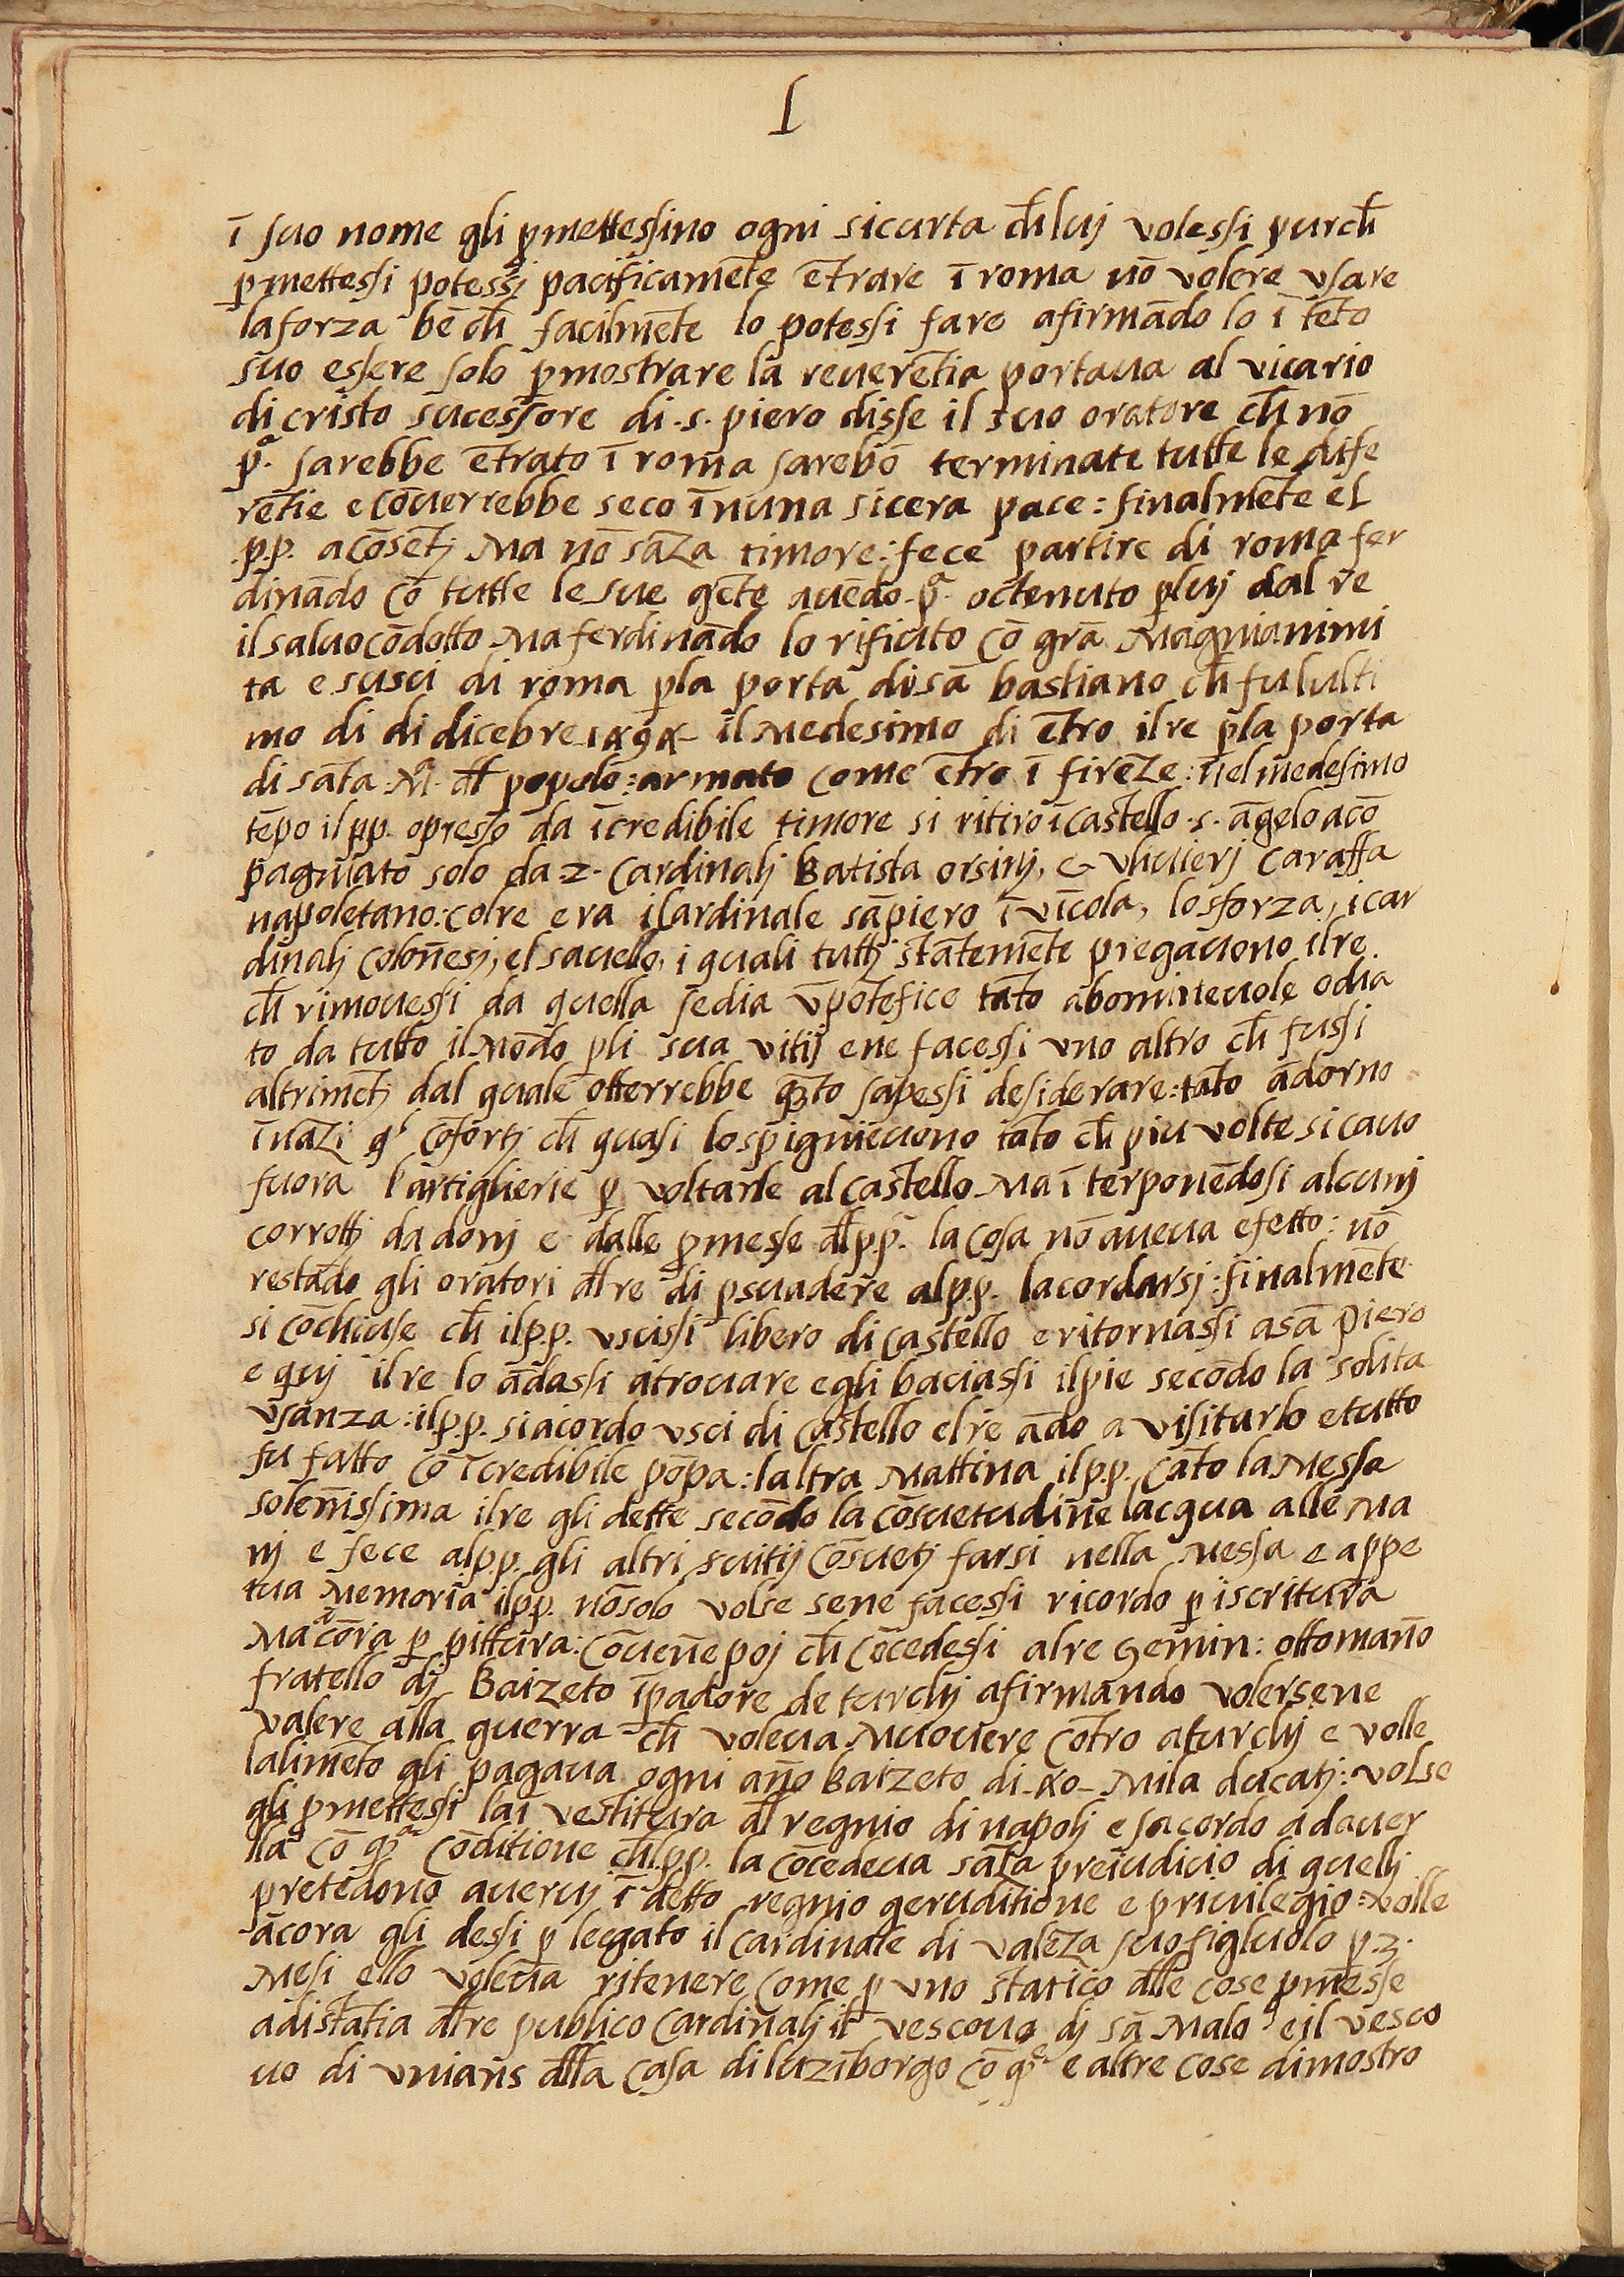 I
ī suo nome gli ꝓmettessino ogni sicurta ch̄ luj volessi purch̄
ꝓmettessi potessi pacificamēte ētrare ī roma nō volere vsare
la forza bē ch̄ facilmēte lo potessi fare afirmādo lo ī tēto
suo essere solo ꝑ mostrare la reuerētia portaua al vicario
di cristo sucessore di .s. piero disse il suo oratore ch̄ nō
pͣ. sarebbe ētrato ī roma sarebō terminate tutte le dife
rētie e cōuerrebbe seco īnuna sicera pace: finalmēte el
.p.p. acōsētj Ma nō sāza timore: fece partire di roma fer
dinādo cō tutte le sue gēte auēdo pͣ. octenuto ꝑ luj dal re
il saluocōdotto Ma ferdinādo lo rifiuto cō grā Magnianimi
ta e susci di roma ꝑla porta di sā bastiano ch̄ fu lulti
mo di di dicēbre 1494 il Medesimo di ētro il re ꝑla porta
di sāta Mͣ. dl̄ popolo: armato come ētro ī firēze: nel medesimo
tēpo il pp. opresso da īcredibile timore si ritiro ī castello .s. āgelo acō
pagniato solo da .2. Cardinalj Batista orsinj, & vliuierj Caraffa
napoletano: col re era il cardinale sāpiero ī vīcola, lo sforza, i car
dinalj Colōnesj, el sauello, i quali tuttj stātemēte pregauono il re
ch̄ rimouessi da quella sedia v̄ pōtefice tāto abomineuole odia
to da tutto il Mōdo ꝑli sua vitij e ne facessi vno altro ch̄ fussi
altrimētj dal quale otterrebbe quāto sapessi desiderare: tāto ādorno
īnāzi qͥ cōfortj ch̄ quasi lo spigniēuono tāto ch̄ piu volte si cauo
fuora lartiglierie ꝑ voltarle al castello Ma īterponēdosi alcunj
corrottj da donj e dalle ꝓmesse dl̄ p.p. la cosa nō aueua efetto: nō
restādo gli oratori dl̄ re di ꝑsuadere al p.p. lacordarsj: finalmēte
si cōchiuse ch̄ il p.p. vscissi libero di castello e ritornassi a sā piero
e quj il re lo ādassi atrouare e gli baciassi il pie secōdo la solita
vsanza: il p.p. si acordo vsci di castello el re ādo a visitarlo e tutto
fu fatto cō īcredibile pōpa: laltra Mattina il p.p. cāto la Messa
solēnissima il re gli dette secōdo la cōsuetudine lacqua alle Ma
nj e fece al p.p. gli altri suitij cōsuetj farsi nella Messa e a ppe
tua Memoria il pp. nōsolo volse sene facessi ricordo ꝑ iscritura
Ma ācōra ꝑ pittura: Cōuēne poj ch̄ cōcedessi al re Gemin: ottomāno
fratello dj Baizeto īpadore de turchj afirmando volersene
valere alla guerra ch̄ voleua Muouere cōtro a turchj e volle
lalimēto gli pagaua ogni āno Baizeto di 40 Mila ducatj: volse
gli ꝓmettessi la īvestitura dl̄ regnio di napolj e sacordo ad auer
lla cō qͣ cōditione ch̄ l p.p. la cōcedeua sāza preiudicio di quellj
pretēdono auerуj ī detto regnio geruditione e priuilegio: volle
ācora gli dessi ꝑ leegato il cardinale di valēza suo figluolo ꝑ .3.
Mesi ello voleua ritenere come ꝑ vno statico dl̄le cose ꝓmesse
a distātia dl̄ re publico Cardinalj il vescouo dj sā Malo e il vesco
uo di vnians dl̄la casa di luzīborgo cō qͤ e altre cose dimostro